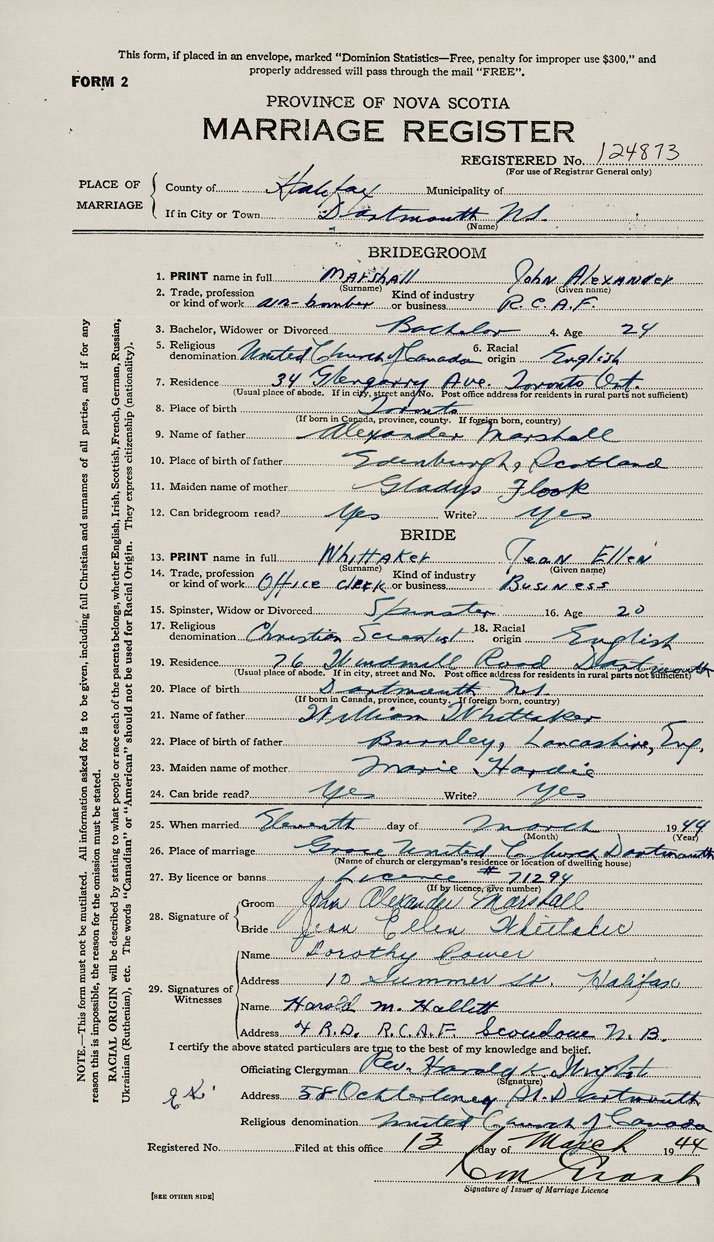 This form, if placed in an envelope, marked “Dominion Statistics—Free, penalty for improper use $300,” and
properly addressed will pass through the mail “FREE”.
FORM 2
PROVINCE OF NOVA SCOTIA
MARRIAGE REGISTER
REGISTERED No. 124873
(For use of Registrar General only)
PLACE OF MARRIAGE
County of Halifax Municipality of
If in City or Town Dartmouth N.S.
(Name)
BRIDEGROOM
1. PRINT name in full Marshall John Alexander
(Surname) (Given name)
2. Trade, profession or kind of work air-bomber Kind of industry or business R.C.A.F.
3. Bachelor, Widower or Divorced Bachelor 4. Age 24
5. Religious denomination United Church of Canada 6. Racial origin English
7. Residence 34 Glengarry Ave. Toronto Ont.
(Usual place of abode. If in city, street and No. Post office address for residents in rural parts not sufficient)
8. Place of birth Toronto
(If born in Canada, province, county. If foreign born, country)
9. Name of father Alexander Marshall
10. Place of birth of father Edenburgh, Scotland
11. Maiden name of mother Gladys Flook
12. Can bridegroom read? Yes Write? Yes
BRIDE
13. PRINT name in full Whittaker Jean Ellen
(Surname) (Given name)
14. Trade, profession or kind of work Office clerk Kind of industry or business Business
15. Spinster, Widow or Divorced Spinster 16. Age 20
17. Religious denomination Christian Scientist 18. Racial origin English
19. Residence 76 Windmill Road Dartmouth
(Usual place of abode. If in city, street and No. Post office address for residents in rural parts not sufficient)
20. Place of birth Dartmouth N.S.
(If born in Canada, province, county. If foreign born, country)
21. Name of father William Whittaker
22. Place of birth of father Burnley, Lancashire, Eng.
23. Maiden name of mother Marie Hardie
24. Can bride read? Yes Write? Yes
25. When married Eleventh day of March 1944
(Month) (Year)
26. Place of marriage Grace United Church Dartmouth
(Name of church or clergyman's residence or location of dwelling house)
27. By licence or banns Licence # 71294
(If by licence, give number)
28. Signature of
Groom John Alexander Marshall
Bride Jean Ellen Whittaker
29. Signatures of Witnesses
Name Dorothy Power
Address 10 Summer St. Halifax
Name Harold M. Hallett
Address 4 R.D. R.C.A.F. Scoudouc N.B.
I certify the above stated particulars are true to the best of my knowledge and belief.
Officiating Clergyman Rev. Harold Wright
(Signature)
Address 58 Ochterloney St. Dartmouth
Religious denomination United Church of Canada
Registered No. Filed at this office 13 day of March 1944
Signature of Issuer of Marriage Licence
[SEE OTHER SIDE]
NOTE.—This form must not be mutilated. All information asked for is to be given, including full Christian and surnames of all parties, and if for any
reason this is impossible, the reason for the omission must be stated.
RACIAL ORIGIN will be described by stating to what people or race each of the parents belongs, whether English, Irish, Scottish, French, German, Russian,
Ukrainian (Ruthenian), etc. The words “Canadian” or “American” should not be used for Racial Origin. They express citizenship (nationality).